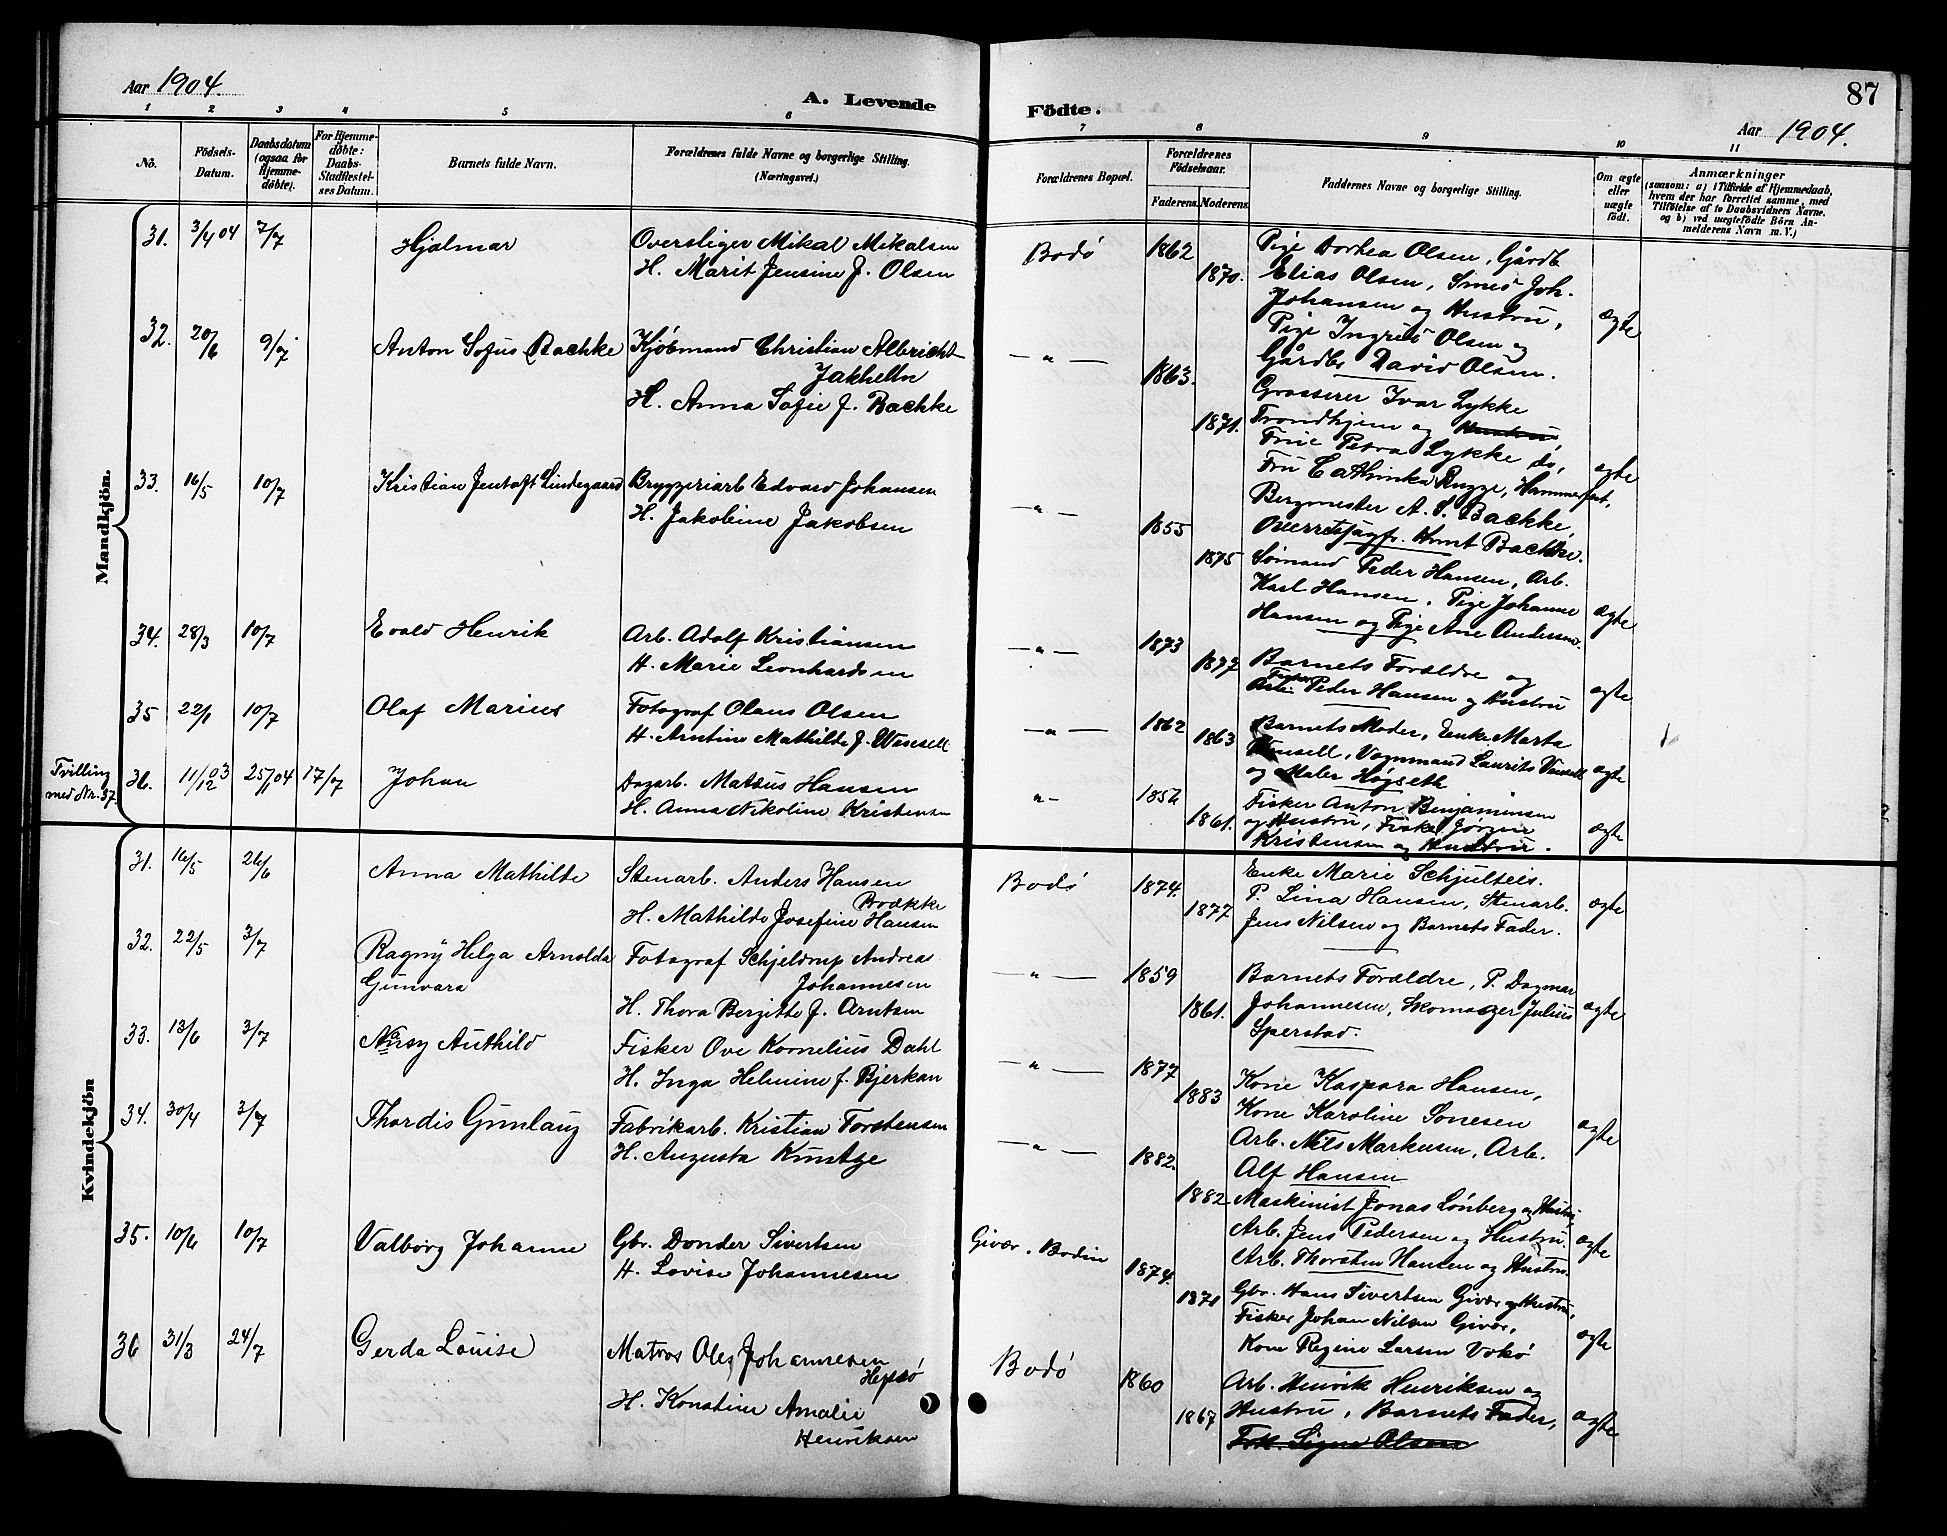 Aar 1904.
A. Levende
1 2 3 4 5 6
No.
Födsels-
Datum.
Daabsdatum
(ogsaa for
Hjemme-
døbte).
For Hjemme-
døbte:
Daabs-
Stadfæstel-
ses Datum.
Barnets fulde Navn.
Forældrenes fulde Navne og borgerlige Stilling.
(Næringsvei.)
Mandkjön.
31. 3/4 04 7/7 Hjalmar Oversliger Mikal Mikalsen
H. Marit Jensine f. Olsen
32. 20/6 9/7 Anton Sofus Bachke Kjøbmand Christian Albricht
Jakhelln
H. Anna Sofie f. Bachke
33. 16/5 10/7 Kristian Jentoft Lindegaard Bryggeriarb Edvard Johansen
H. Jakobine Jakobsen
34. 28/3 10/7 Evald Henrik Arb. Adolf Kristiansen
H. Marie Leonhardsen
35 22/1 10/7 Olaf Marius Fotograf Olaus Olsen
H. Arntine Mathilde f. Wensell
Tvilling
med Nr. 37.
36. 11/12 03 25/1 04 17/7 Johan Dagarb. Matsus Hansen
H. Anna Nikoline Kristensen
Kvindekjön
31. 16/5 26/6 Anna Mathilde Stenarb. Anders Hansen
Brække
H. Mathilde Josefine Hansen
32. 22/5 3/7 Ragny Helga Arnolda Fotograf Schjeldrup Andreas
Gunvara Johannesen
H. Thora Bergitte f. Arntsen
33. 13/6 3/7 Narsy Authild Fisker Ove Kornelius Dahl
H. Inga Helmine f. Bjerkan
34. 30/4 3/7 Thordis Gunlaug Fabrikarb. Kristian Torstensen
H. Augusta Kuntze
35. 10/6 10/7 Valborg Johanne Gbr. Donder Sivertsen
H. Lovise Johannesen
36 31/3 24/7 Gerda Louise Matros Ole Johannesen
Hepsø
H. Konstine Amalie
Henriksen
87
Födte.
Aar 1904.
7 8 9 10 11
Forældrenes Bopæl.
Forældrenes
Födselsaar.
Faderens. Moderens.
Faddernes Navne og borgerlige Stilling.
Om ægte
eller
uægte
födt.
Anmærkninger
(saasom: a) i Tilfælde af Hjemmedaab,
hvem der har forrettet samme, med
Tilföielse af to Daabsvidners Navne,
og b) ved uægtefödte Börn An-
melderens Navn m. V.)
Bodø 1862 Pige Dorthea Olsen, Gårdb
1870. Elias Olsen, Smed Joh.
Johansen og Hustru, ægte
Pige Ingrid Olsen og
Gårdbr David Olsen.
— " — 1863. Grosserer Ivar Lykke
1871. Trondhjem og Hustru,
Frue Petra Lykke do,
Fru Cathinka Rygge, Hammerfest, ægte
Bergmester A. S. Bachke,
Overretssagf. Knut Bachke.
— " — 1855 Sømand Peder Hansen, Arb.
1875 Karl Hansen, Pige Johanne
Hansen og Pige Ane Andersen. ægte
— " — 1873 Barnets Forældre og
1877 Arb. Fisker Peder Hansen og Hustru ægte
— " — 1862 Barnets Moder, Enke Marta
1863 Wensell, Vognmand Laurits Vensell
og Maler Høgseth ægte
" — 1856 Fisker Anton Benjaminsen
1861. og Hustru, Fisker Jørgen
Kristensen og Hustru. ægte
Bodø 1874. Enke Marie Schjulteis.
1877 P. Lina Hansen, Stenarb.
Jens Nilsen og Barnets Fader. ægte
— " — 1859 Barnets Forældre, P. Dagmar
1861. Johannesen, Skomager Julius ægte
Sperstad.
— " — 1877 Kone Kaspara Hansen,
1883 Kone Karoline Sonesen
Arb. Nils Markusen, Arb. ægte
Alf Hansen
— " — 1882. Maskinist Jonas Lønberg og Hustru,
1882 Arb. Jens Pedersen og Hustru. ægte
Arb. Thorsten Hansen og Hustru.
Givær, Bodin 1874. Gbr. Hans Sivertsen Givær og Hustru,
1871 Fisker Johan Nilsen Givær,
Kone Regine Larsen Vokø ægte
Bodø 1860 Arb. Henrik Henriksen og
1867 Hustru, Barnets Fader, ægte
Frk. Signe Olsen